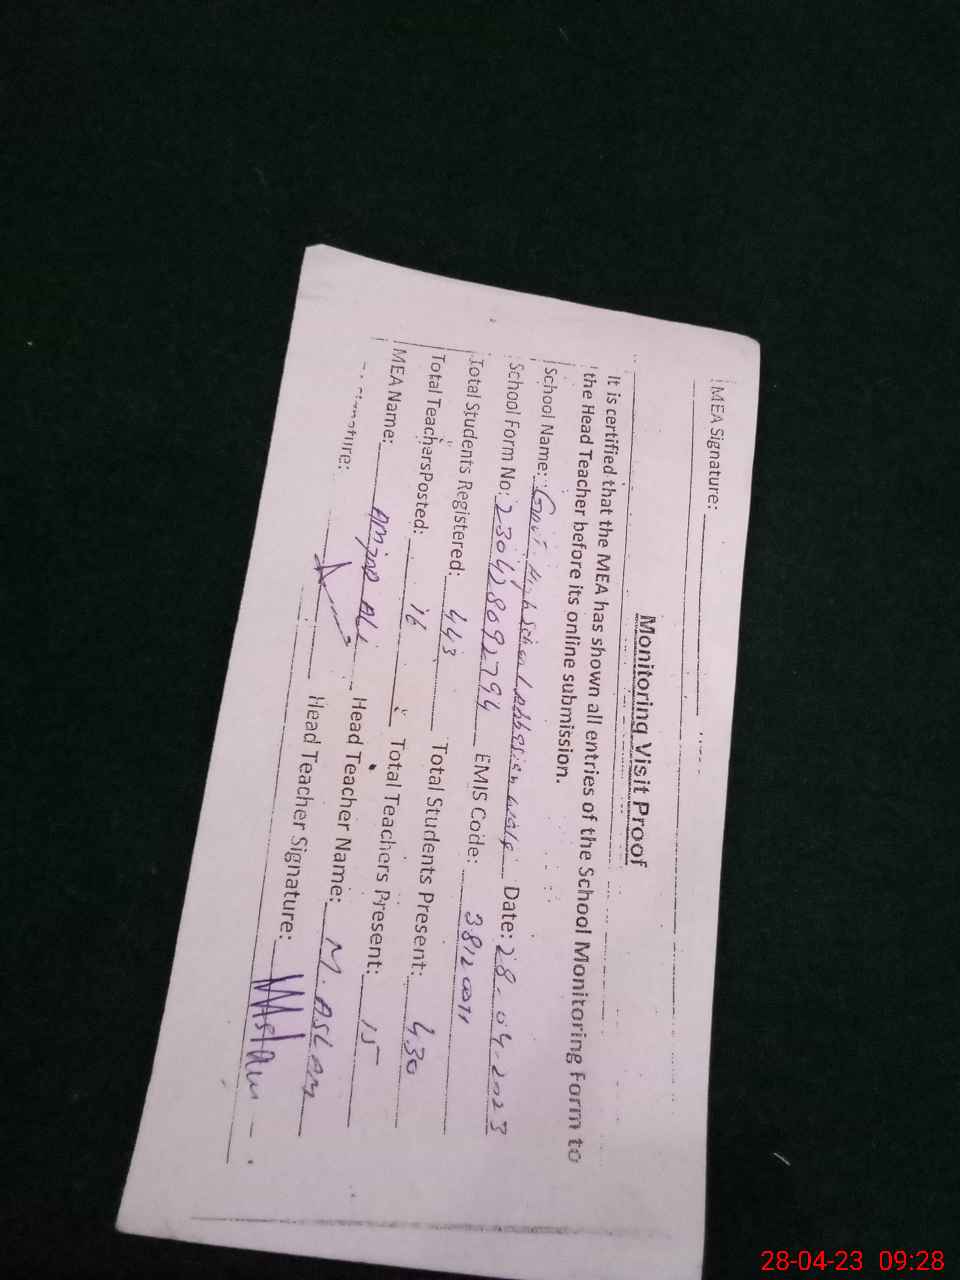 MEA Signature:
Monitoring Visit Proof
It is certified that the MEA has shown all entries of the School Monitoring Form to
the Head Teacher before its online submission.
School Name: Govt. High School Date: 28-04-2023
School Form No: 230428092794 EMIS Code:
Total Students Registered: 443 Total Students Present: 430
Total Teachers Posted: 16 Total Teachers Present: 15
MEA Name: Amjad Ali Head Teacher Name: M. ASLAM
Signature: Head Teacher Signature: Aslam
28-04-23 09:28